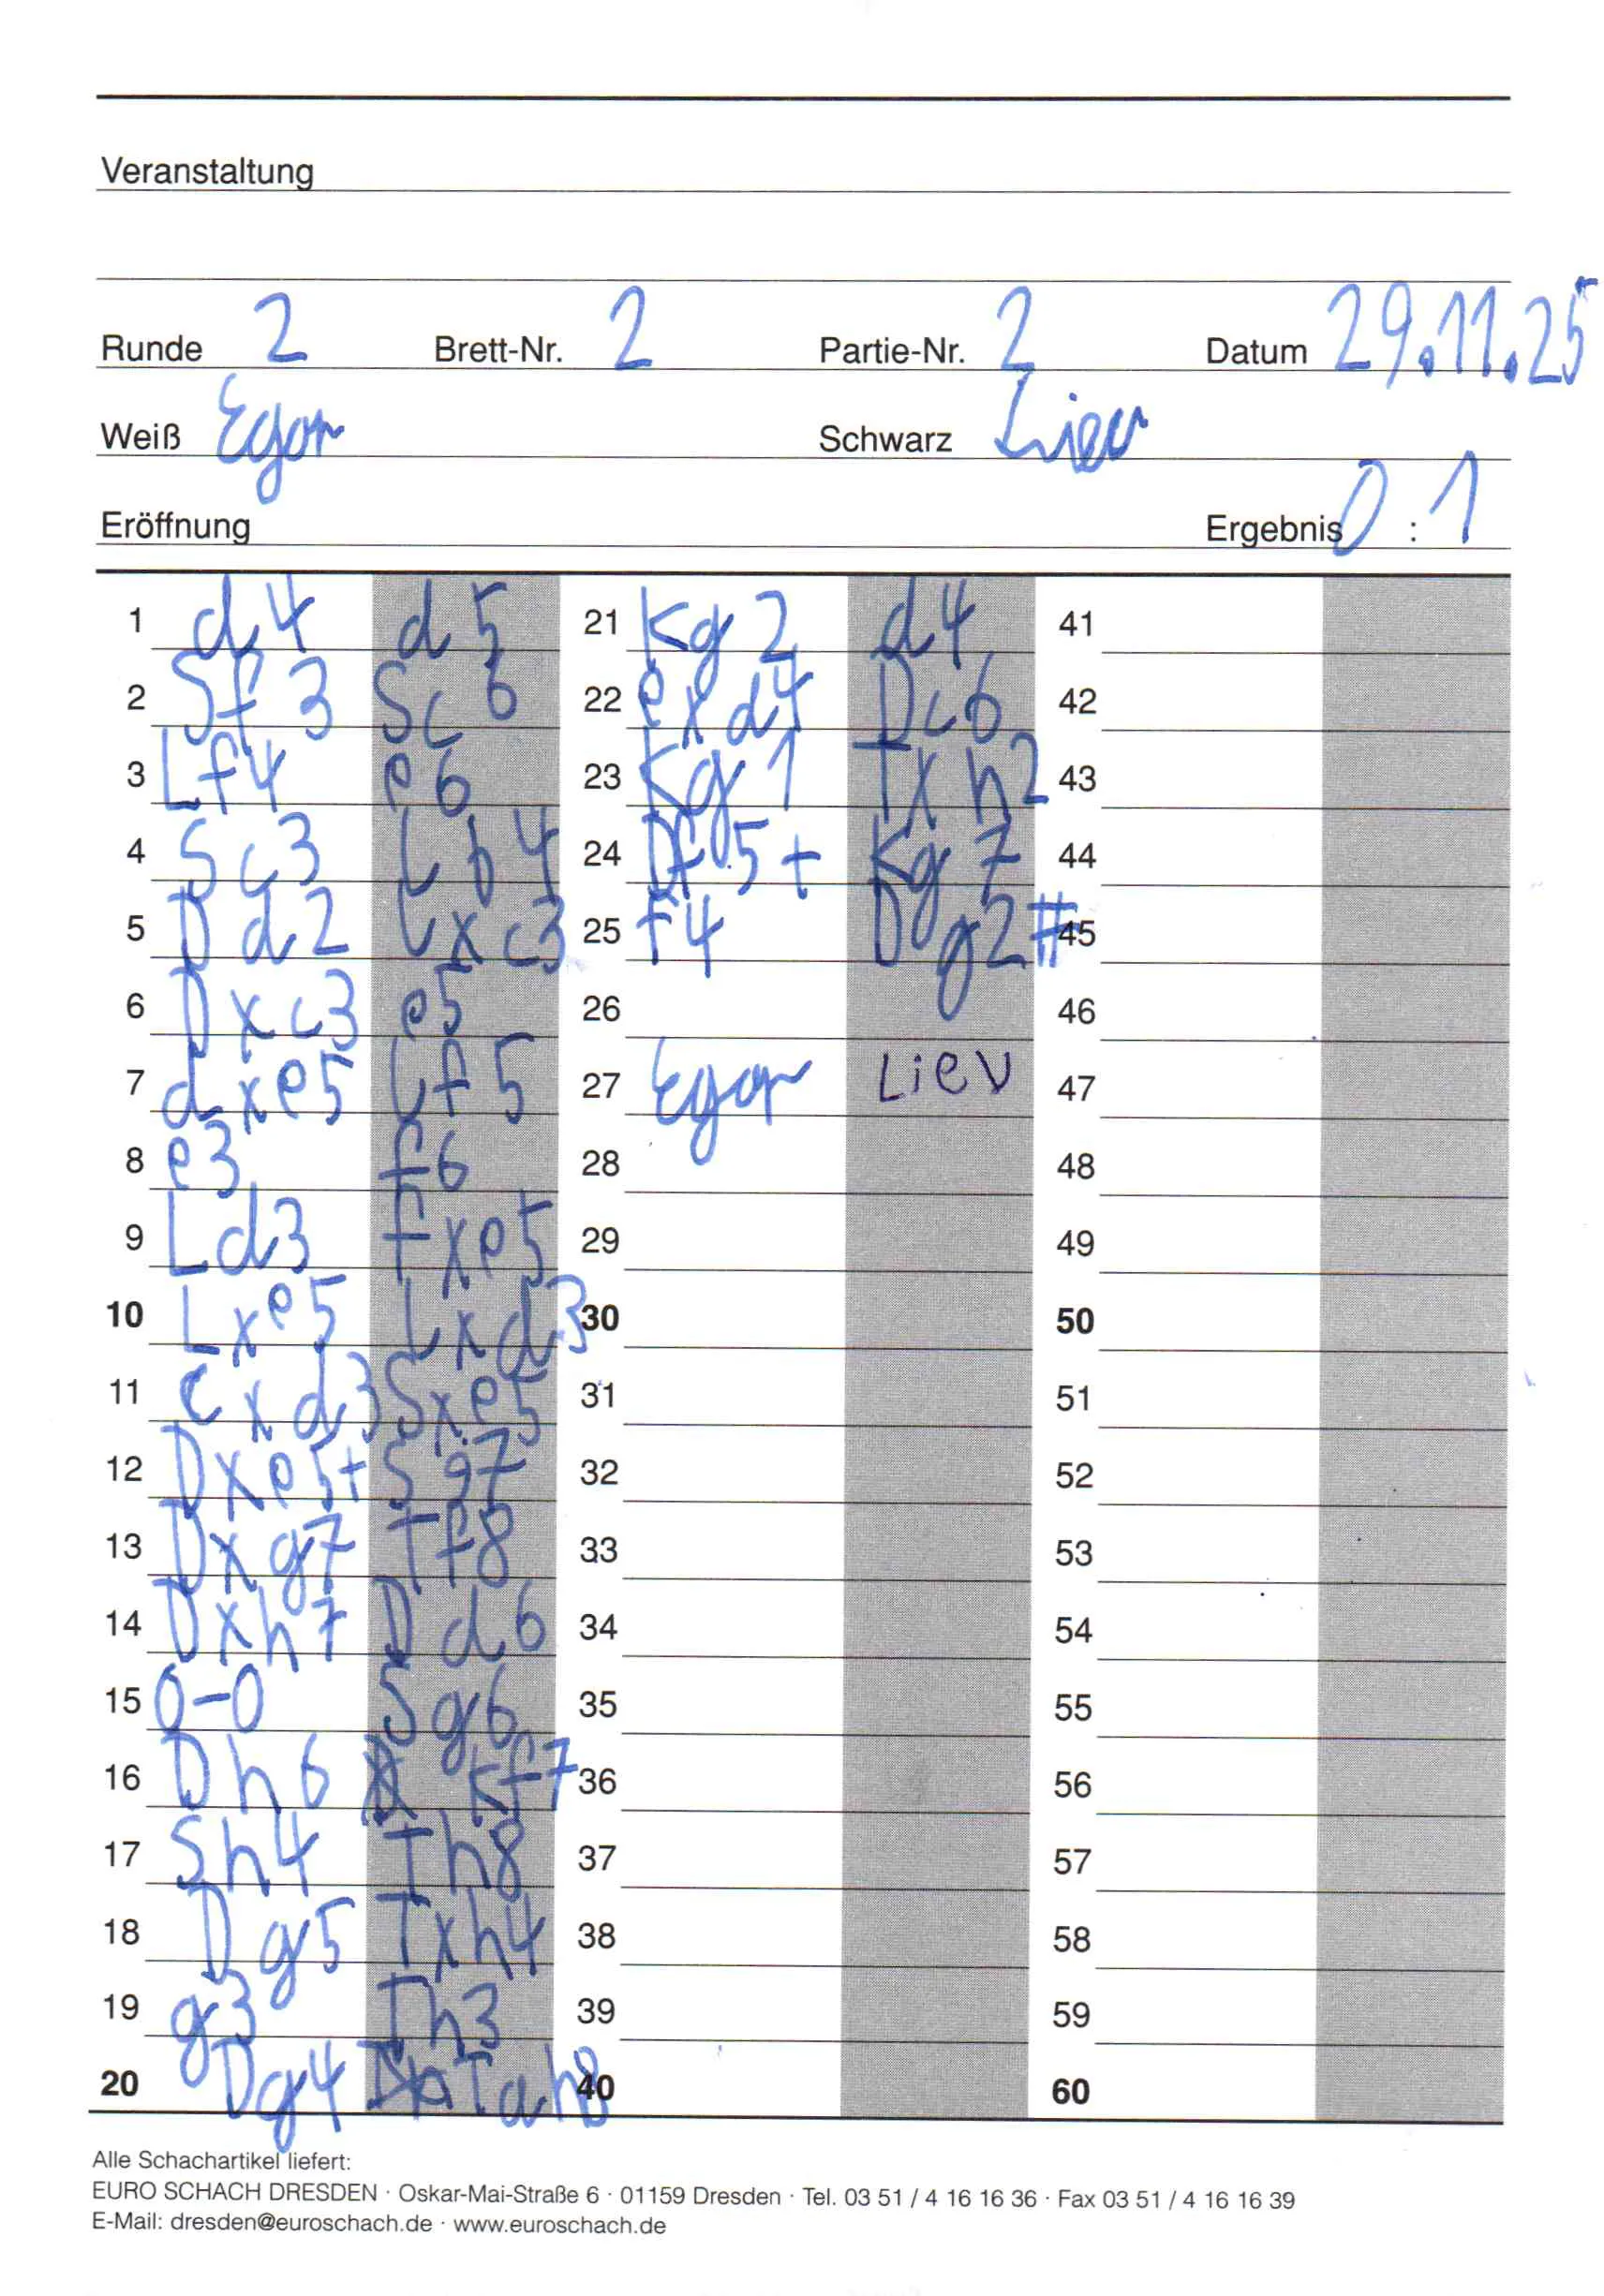 Veranstaltung
Runde 2 Brett-Nr. 2 Partie-Nr. 2 Datum 29.11.25
Weiß Egor Schwarz Liev
Eröffnung Ergebnis 0 : 1
1 d4 d5 21 Kg2 d4 41
2 Sf3 Sc6 22 exd4 Dc6 42
3 Lf4 e6 23 Kg1 Txh2 43
4 Sc3 Lb4 24 Df5+ Kg7 44
5 Dd2 Lxc3 25 f4 Dg2# 45
6 Dxc3 e5 26 46
7 dxe5 Lf5 27 Egor Liev 47
8 e3 f6 28 48
9 Ld3 fxe5 29 49
10 Lxe5 Lxd3 30 50
11 cxd3 Sxe5 31 51
12 Dxe5+ Se7 32 52
13 Dxg7 Tf8 33 53
14 Dxh7 Dd6 34 54
15 0-0 Sg6 35 55
16 Dh6 Kf7 36 56
17 Sh4 Th8 37 57
18 Dg5 Txh4 38 58
19 g3 Th3 39 59
20 Dg4 Tah8 40 60
Alle Schachartikel liefert:
EURO SCHACH DRESDEN · Oskar-Mai-Straße 6 · 01159 Dresden · Tel. 03 51 / 4 16 16 36 · Fax 03 51 / 4 16 16 39
E-Mail: dresden@euroschach.de · www.euroschach.de